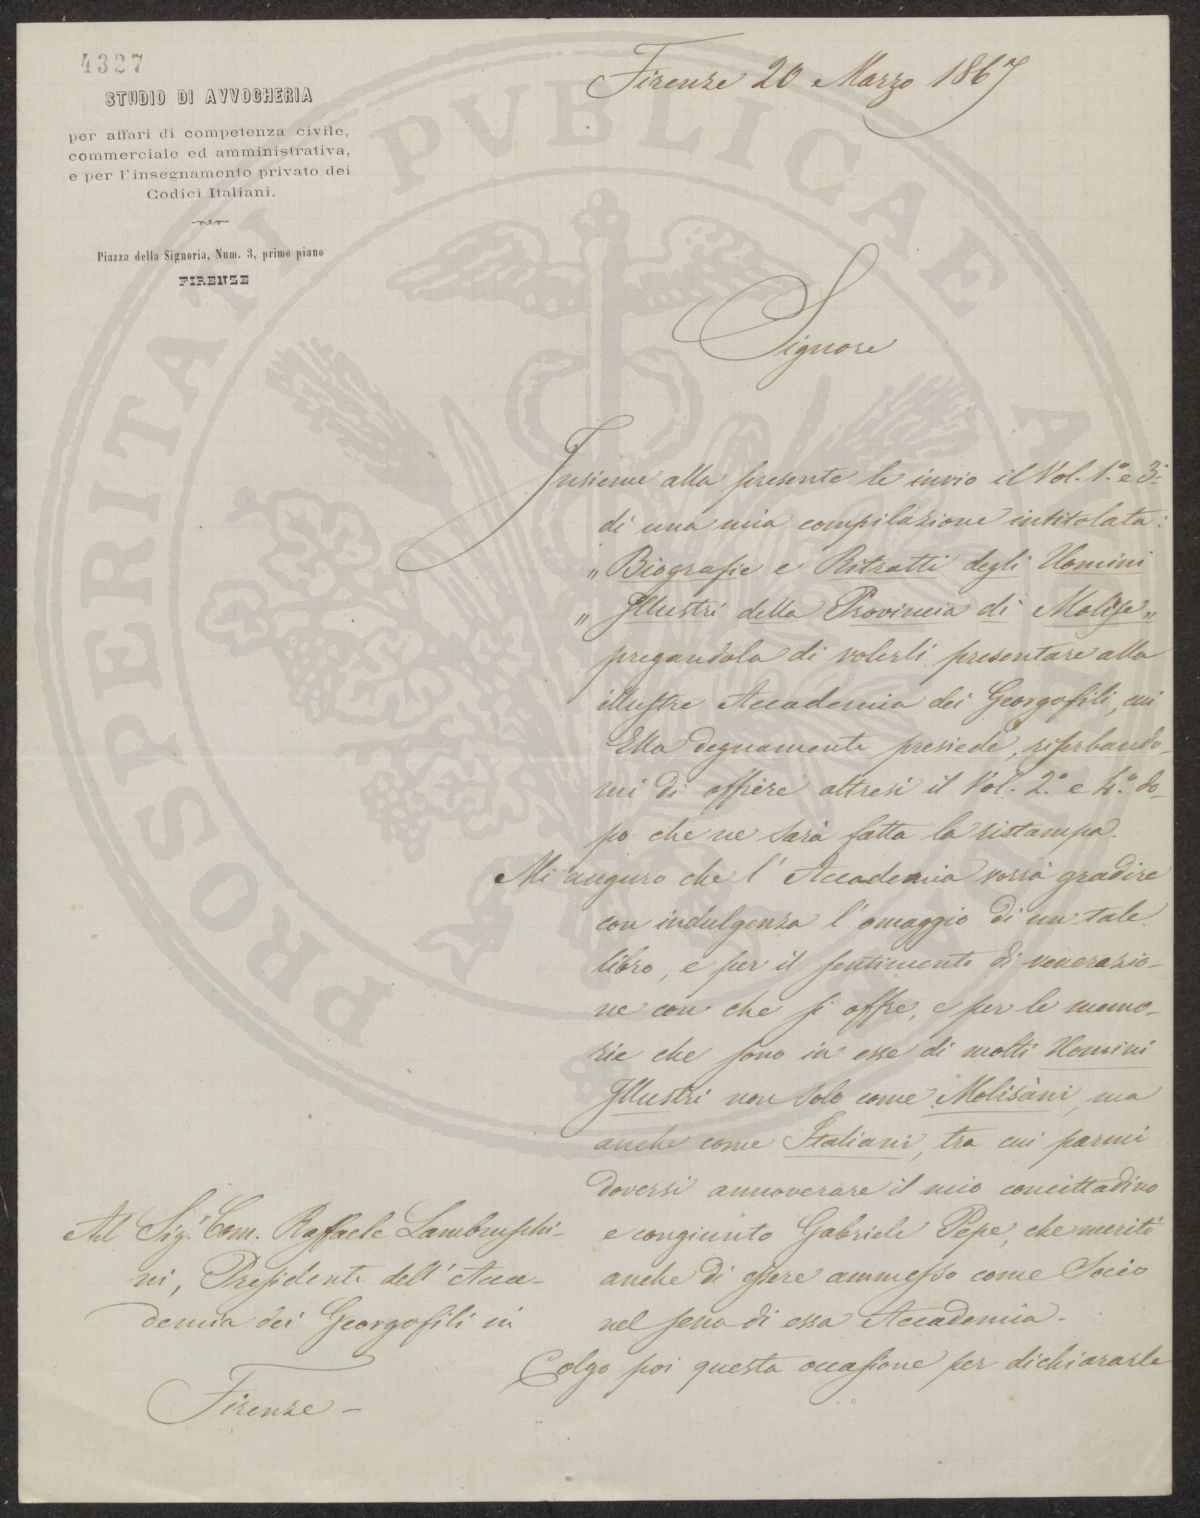 4327
STUDIO DI AVVOCHERIA
per affari di competenza civile,
commerciale ed amministrativa,
e per l'insegnamento privato dei
Codici Italiani.
Piazza della Signoria, Num. 3, primo piano
FIRENZE
Firenze 20 Marzo 1867
Signore
Insieme alla presente le invio il Vol. 1.° e 3.°
di una mia compilazione intitolata:
„ Biografie e Ritratti degli Uomini
„ Illustri della Provincia di Molise„
pregandola di volerli presentare alla
illustre Accademia dei Georgofili, cui
Ella degnamente presiede, riserbando-
mi di offrire altresì il Vol. 2.° e 4.° do-
po che ne sarà fatta la ristampa.
Mi auguro che l'Accademia vorrà gradire
con indulgenza l'omaggio di un tale
libro, e per il sentimento di venerazio-
ne con che si offre, e per le memo-
rie che sono in esse di molti Uomini
Illustri non solo come Molisàni, ma
anche come Italiani, tra cui parmi
doversi annoverare il mio concittadino
e congiunto Gabriele Pepe, che meritò
anche di essere ammesso come Socio
nel seno di essa Accademia.
Colgo poi questa occasione per dichiararle
Al Sig.r Com. Raffaele Lambruschi-
ni, Presidente dell'Acca-
demia dei Georgofili in
Firenze -
PROSPERITATI PVBLICAE AV